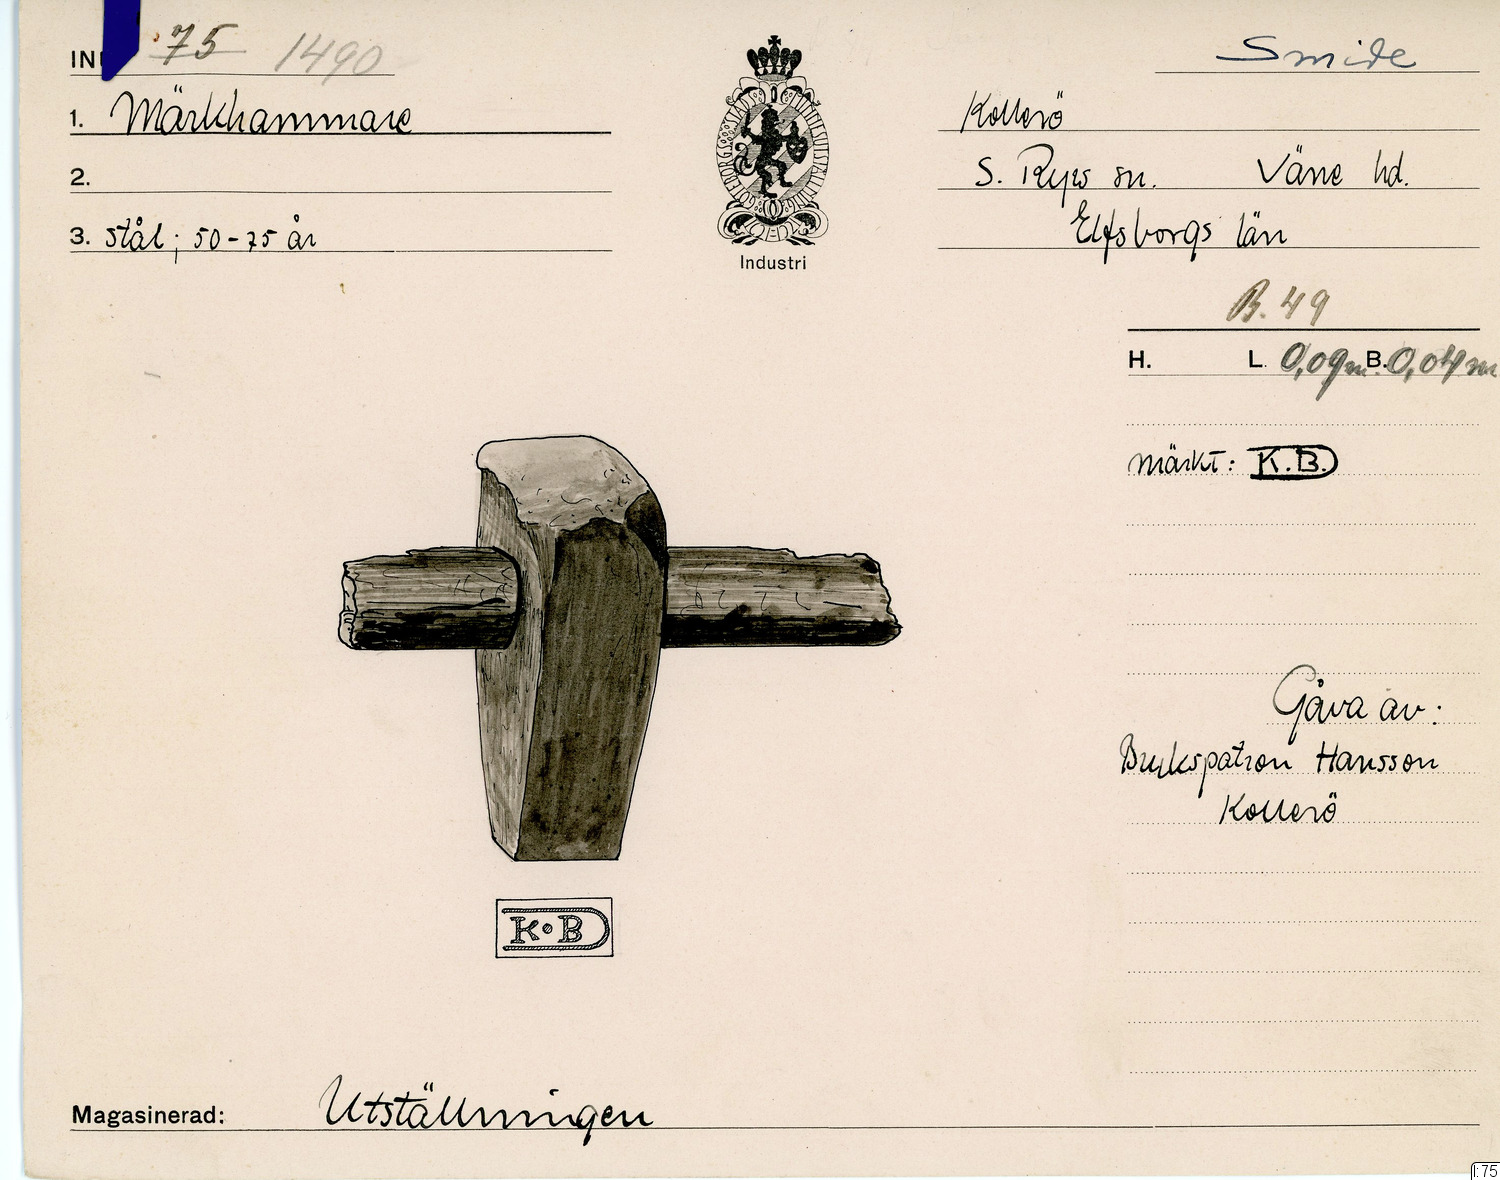 IN 75 1490
Smide
1. Märkhammare
2.
3. stål; 50-75 år
GÖTEBORGS STADS MINNESUTSTÄLLNING
Industri
Kollerö
S. Ryrs sn. Väne hd.
Elfsborgs län
B. 49
H. L. 0,09 m. B. 0,04 m
märkt: K.B.
Gåva av:
Brukspatron Hansson
Kollerö
K·B
Magasinerad: Utställningen
I:75